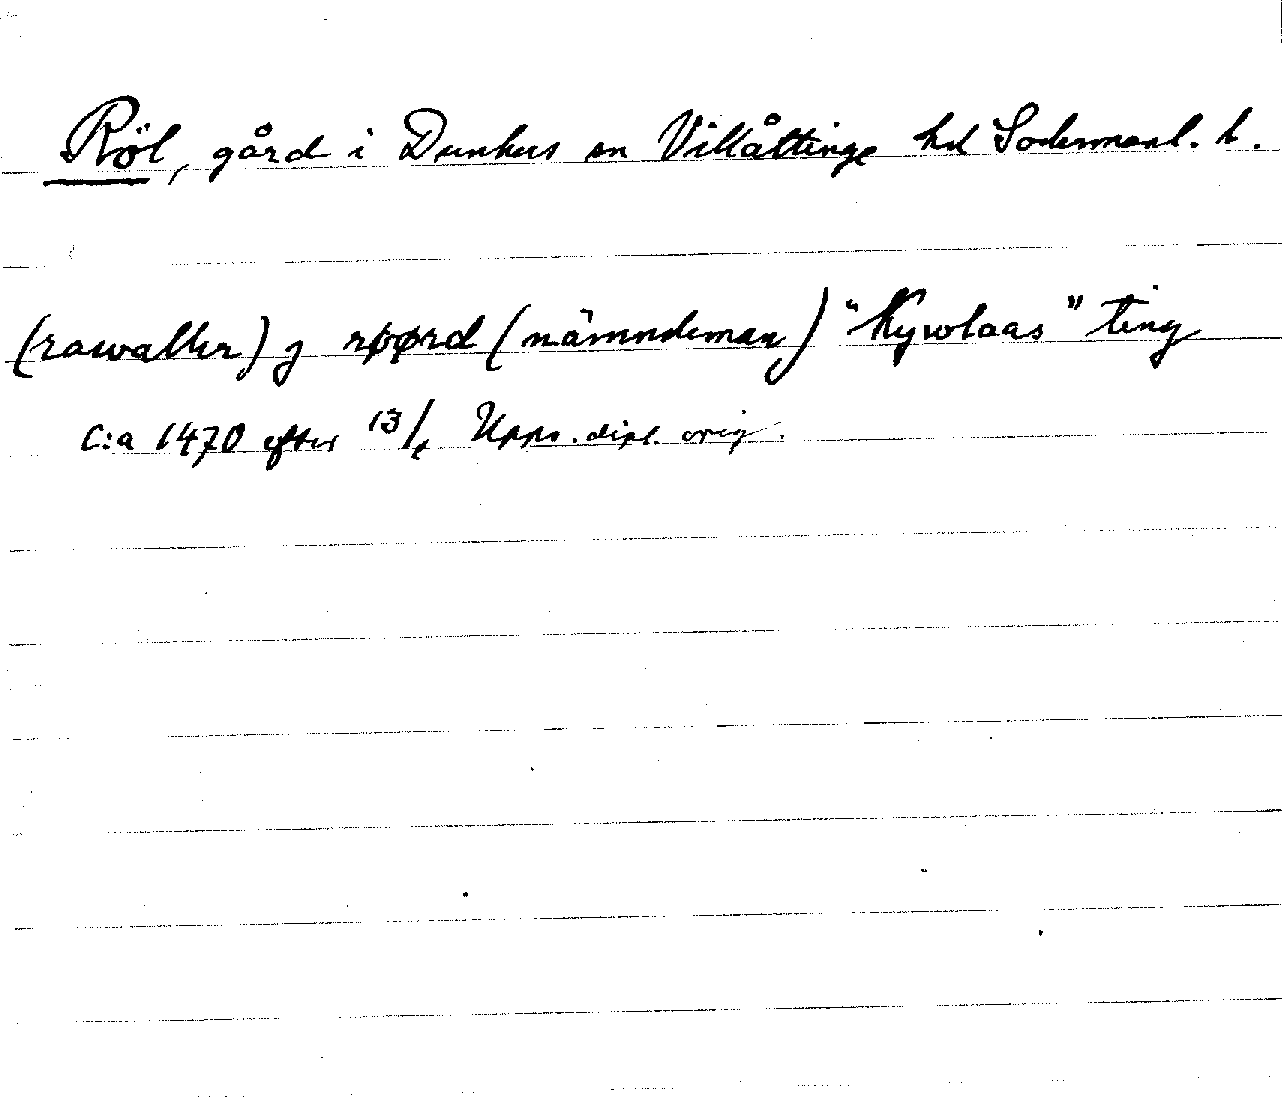 Röl, gård i Dunkers sn Villåttinge hd Södermanl. l.
(rawalter) j røørd (nämndeman) "kyrolaas" ting
c:a 1470 efter 13/1 Upps. dipl. orig.